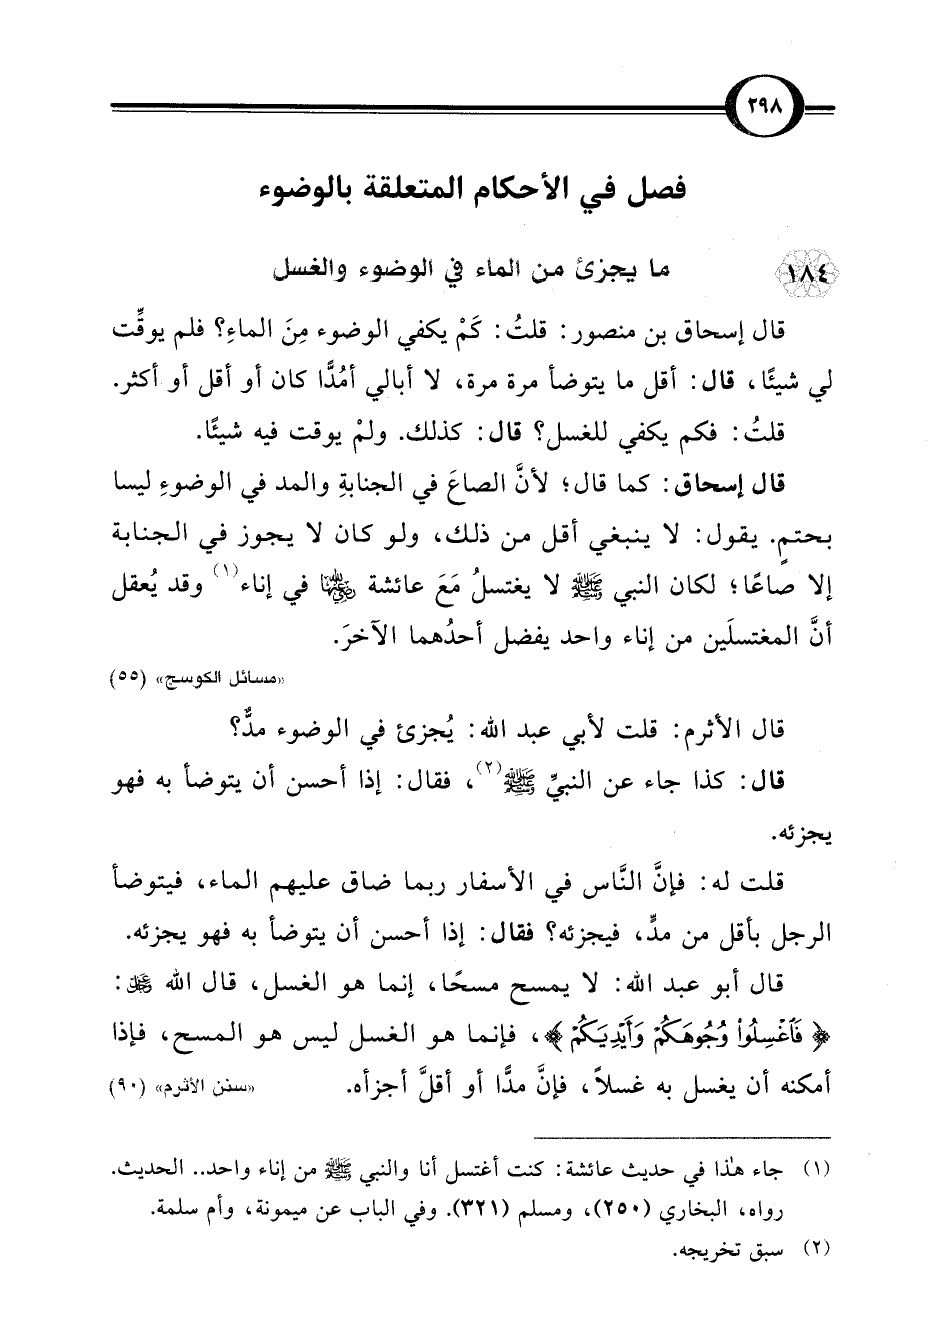 ٢٩٨
فصل في الأحكام المتعلقة بالوضوء
١٨٤ ما يجزئ من الماء في الوضوء والغسل
قال إسحاق بن منصور: قلتُ: كَمْ يكفي الوضوء مِنَ الماءِ؟ فلم يوقِّت
لي شيئًا، قال: أقل ما يتوضأ مرة مرة، لا أبالي أمُدًّا كان أو أقل أو أكثر.
قلتُ: فكم يكفي للغسل؟ قال: كذلك. ولمْ يوقت فيه شيئًا.
قال إسحاق: كما قال؛ لأنَّ الصاعَ في الجنابةِ والمد في الوضوءِ ليسا
بحتمٍ. يقول: لا ينبغي أقل من ذلك، ولو كان لا يجوز في الجنابة
إلا صاعًا؛ لكان النبي ﷺ لا يغتسلُ مَعَ عائشة رضي الله عنها في إناء(١) وقد يُعقل
أنَّ المغتسلَين من إناء واحد يفضل أحدُهما الآخرَ.
«مسائل الكوسج» (٥٥)
قال الأثرم: قلت لأبي عبد الله: يُجزئ في الوضوء مدٌّ؟
قال: كذا جاء عن النبيِّ ﷺ(٢)، فقال: إذا أحسن أن يتوضأ به فهو
يجزئه.
قلت له: فإنَّ النَّاس في الأسفار ربما ضاق عليهم الماء، فيتوضأ
الرجل بأقل من مدٍّ، فيجزئه؟ فقال: إذا أحسن أن يتوضأ به فهو يجزئه.
قال أبو عبد الله: لا يمسح مسحًا، إنما هو الغسل، قال الله ﷻ:
﴿فَٱغْسِلُوا۟ وُجُوهَكُمْ وَأَيْدِيَكُمْ﴾، فإنما هو الغسل ليس هو المسح، فإذا
أمكنه أن يغسل به غسلاً، فإنَّ مدًّا أو أقلَّ أجزأه. «سنن الأثرم» (٩٠)
(١) جاء هذا في حديث عائشة: كنت أغتسل أنا والنبي ﷺ من إناء واحد.. الحديث.
رواه، البخاري (٢٥٠)، ومسلم (٣٢١). وفي الباب عن ميمونة، وأم سلمة.
(٢) سبق تخريجه.